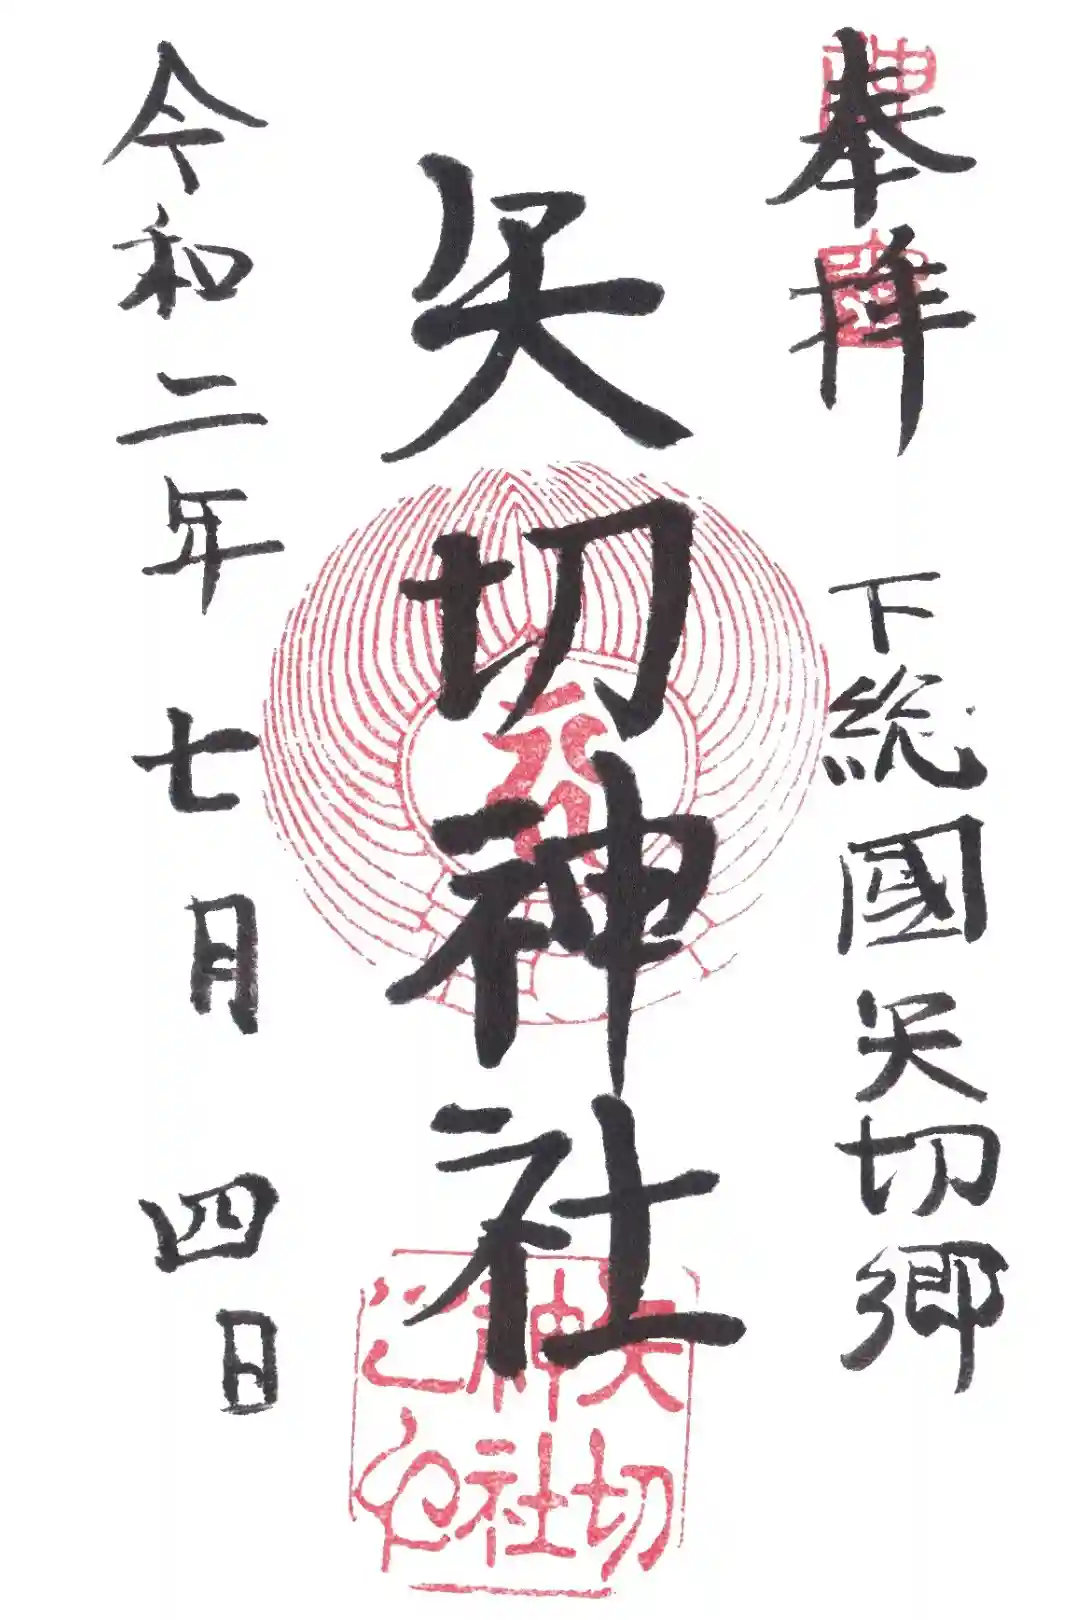 奉拝
下総國矢切郷
矢切神社
令和二年七月四日
矢切
神社
之印